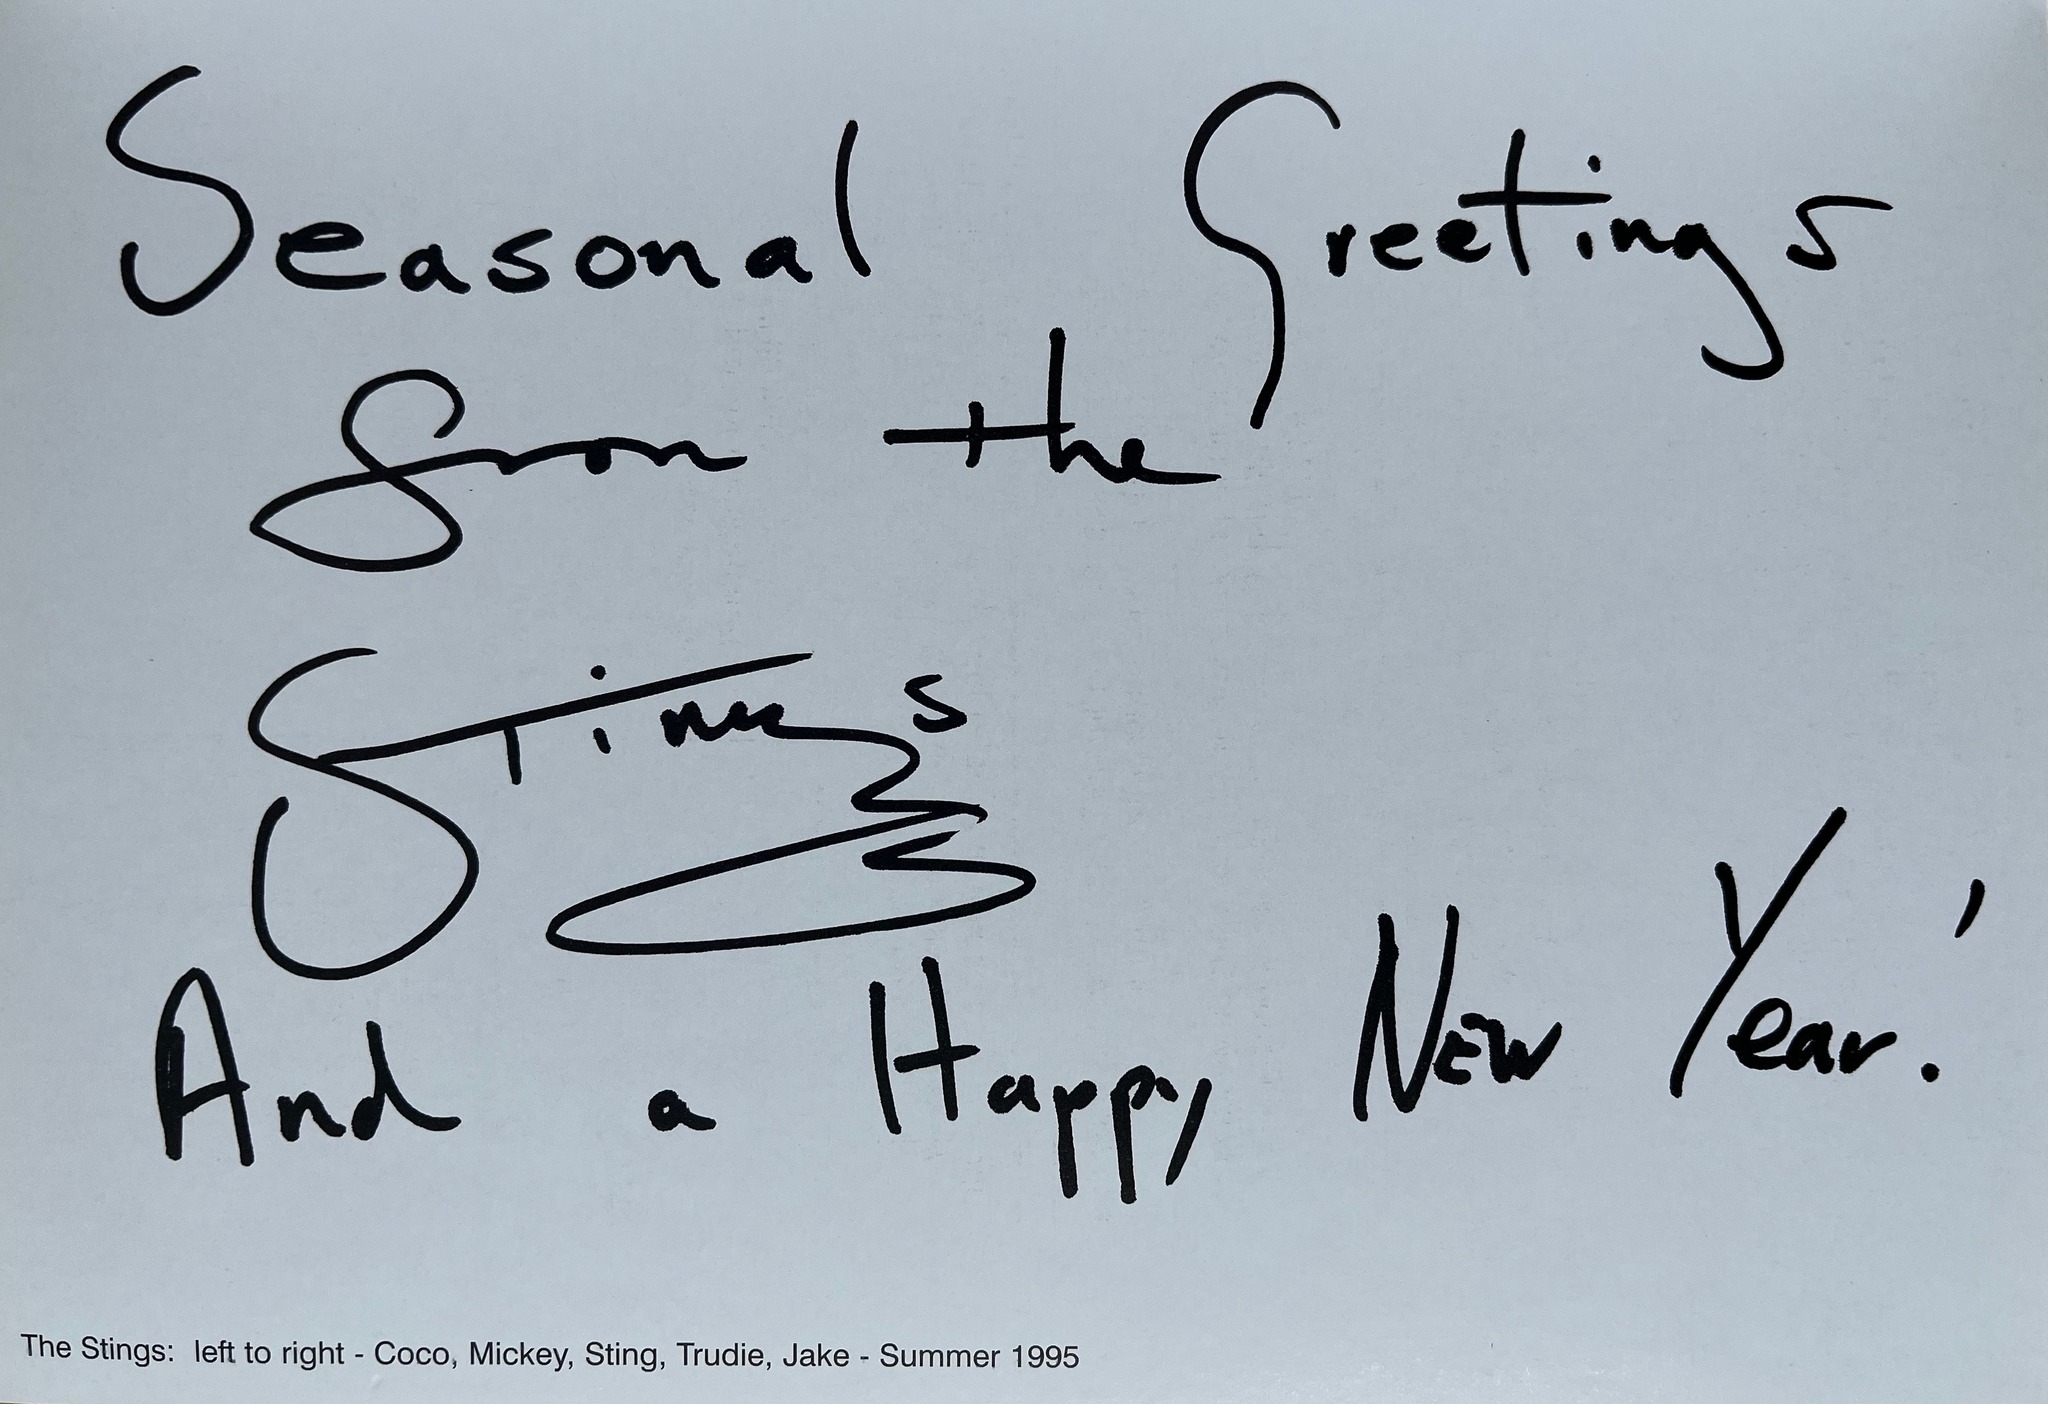 Seasonal Greetings
from the
Stings
And a Happy New Year!
The Stings: left to right - Coco, Mickey, Sting, Trudie, Jake - Summer 1995